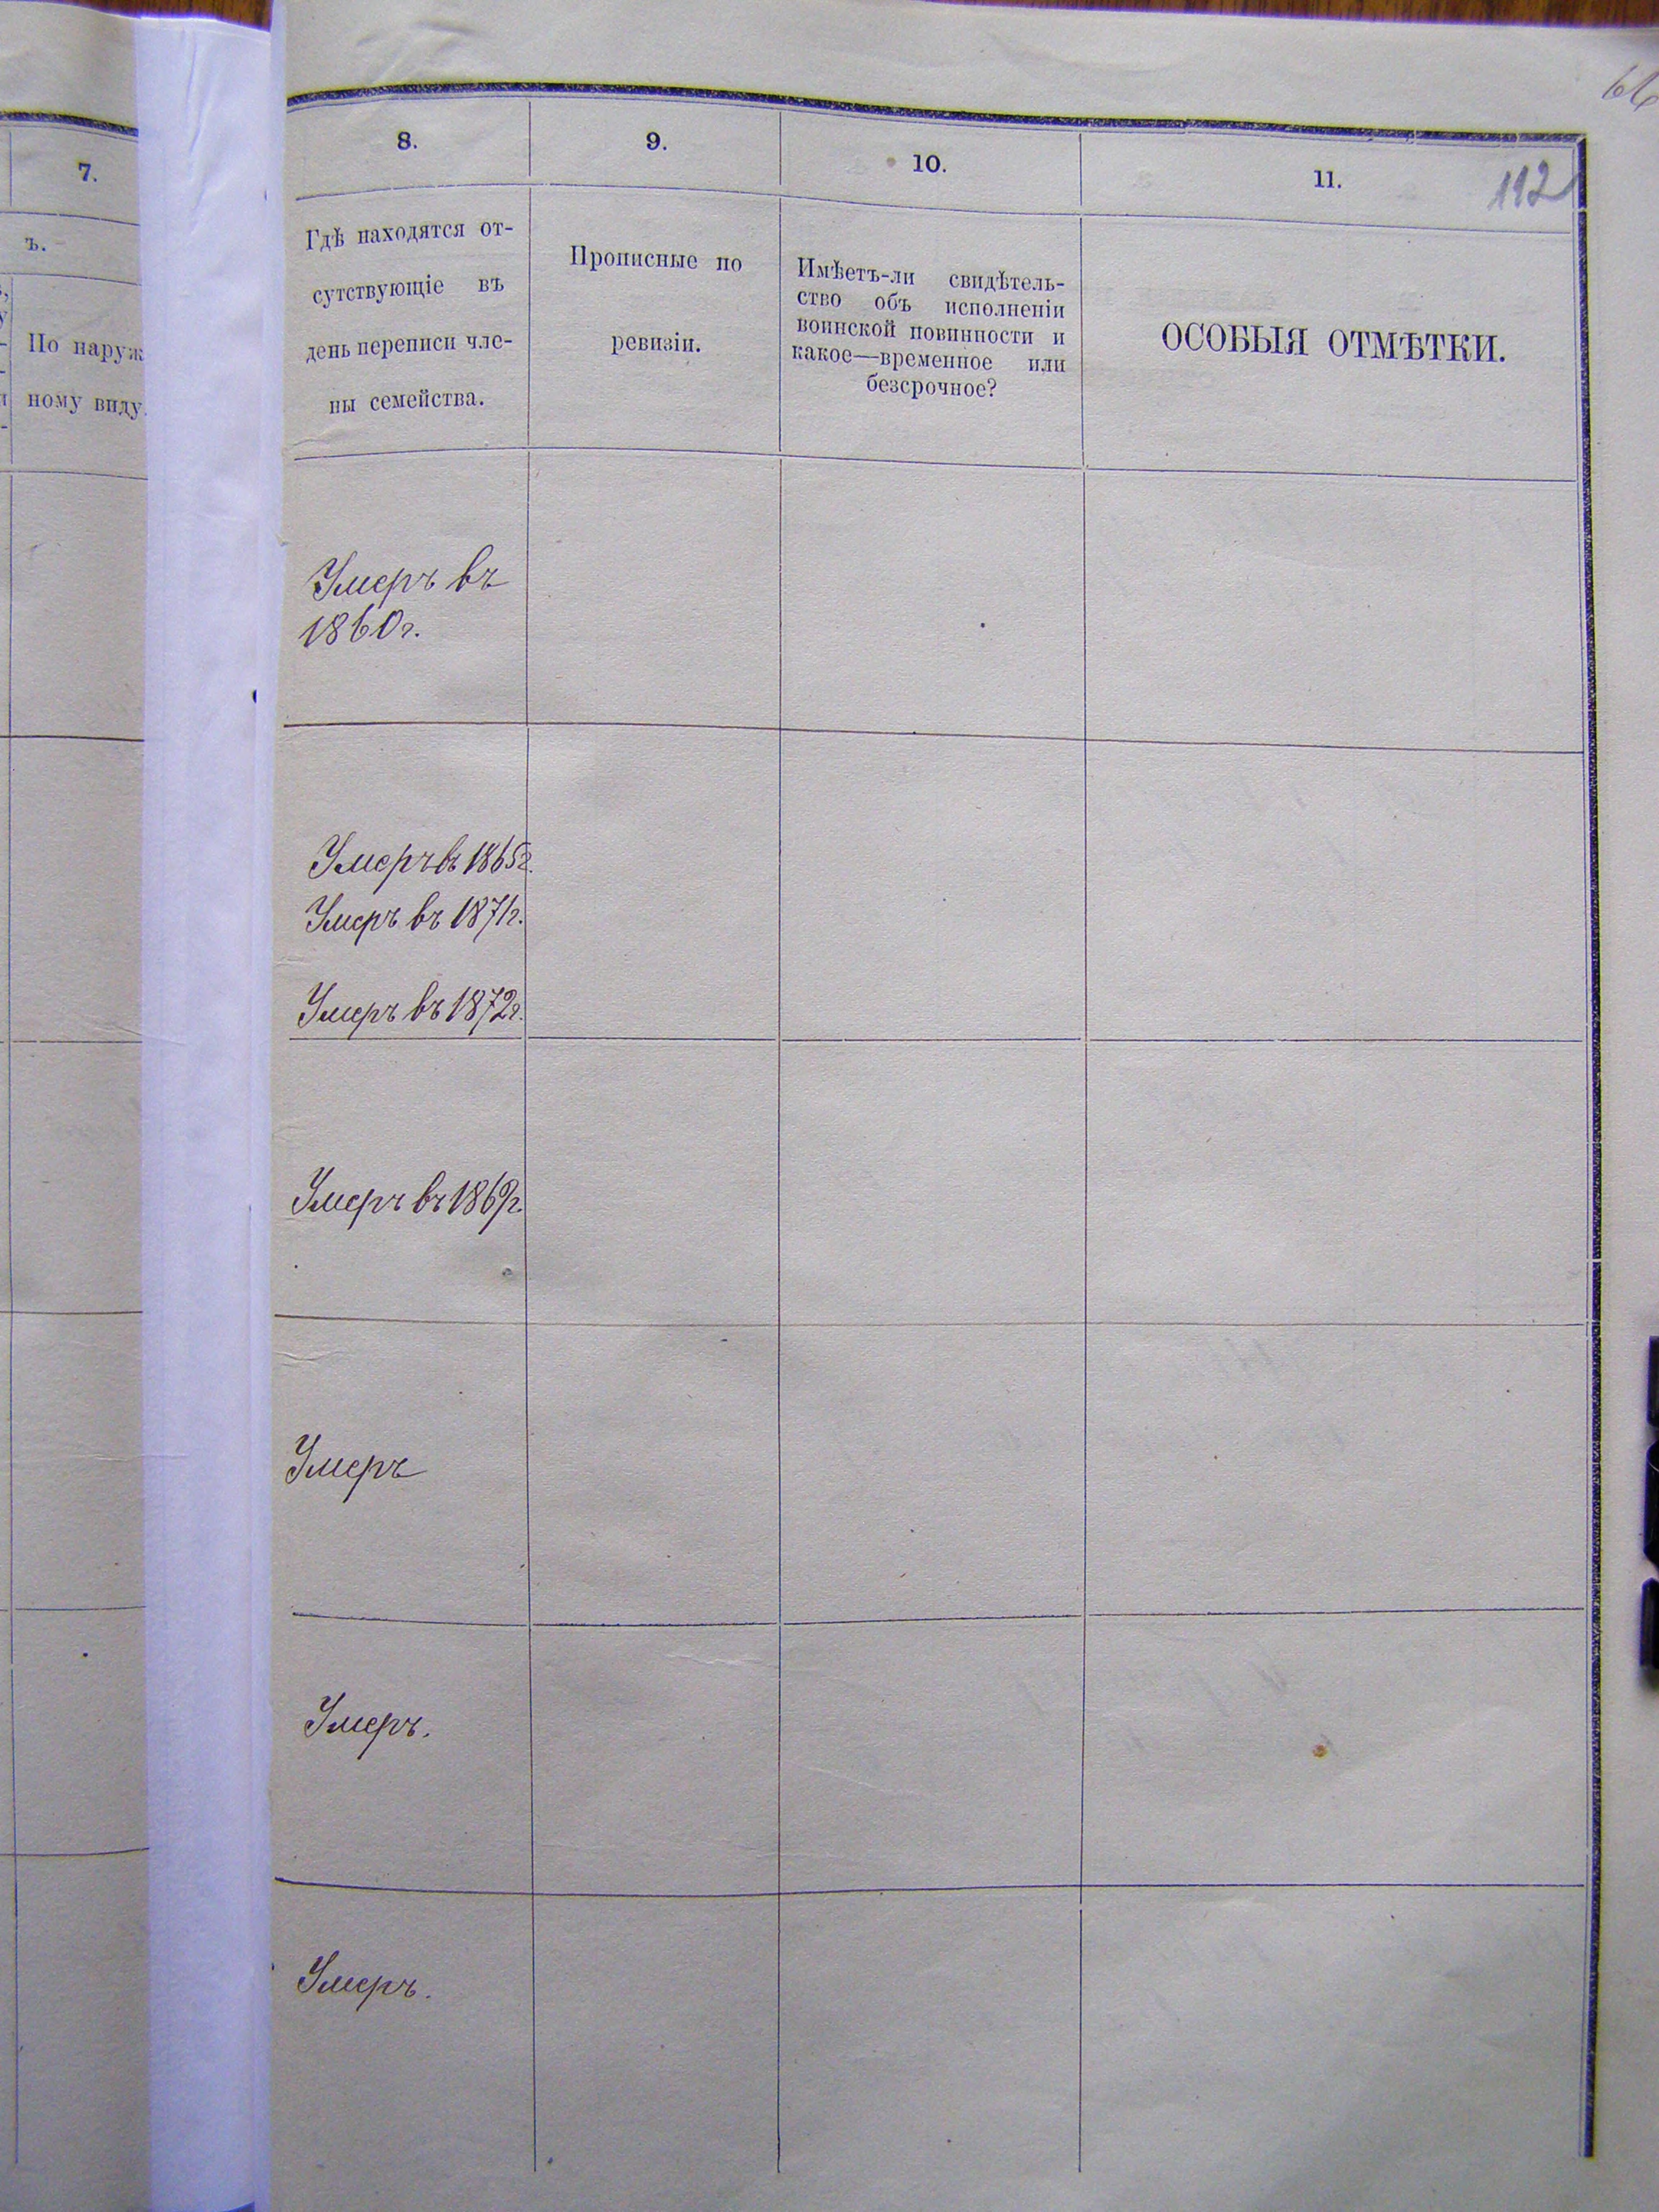 112
7.
8.
9.
10.
11.
ъ.
По наруж
ному виду
Гдѣ находятся от-
сутствующіе въ
день переписи чле-
ны семейства.
Прописные по
ревизіи.
Имѣетъ-ли свидѣтель-
ство объ исполненіи
воинской повинности и
какое—временное или
безсрочное?
ОСОБЫЯ ОТМѢТКИ.
Умеръ въ
1860г.
Умеръ въ 1865г.
Умеръ въ 1871г.
Умеръ въ 1872г.
Умеръ въ 1869г.
Умеръ
Умеръ.
Умеръ.